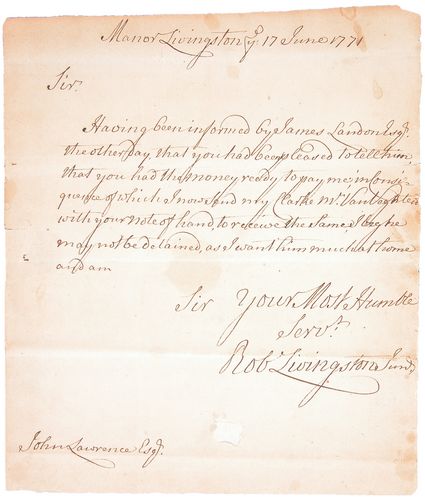 Manor Livingston ye. 17 June 1771
Sir.
Having been informed by James Landon Esqr.
the other Day, that you had been pleased to tell him,
that you had the money ready to pay me in Conse
quence of which I now send my Clarke Mr. Van
with your note of hand, to receive the Same I beg he
may not be detained, as I want him much at home
and am
Sir Your Most Humble
Servt.
Robt Livingston Junr.
John Lawrence Esqr.